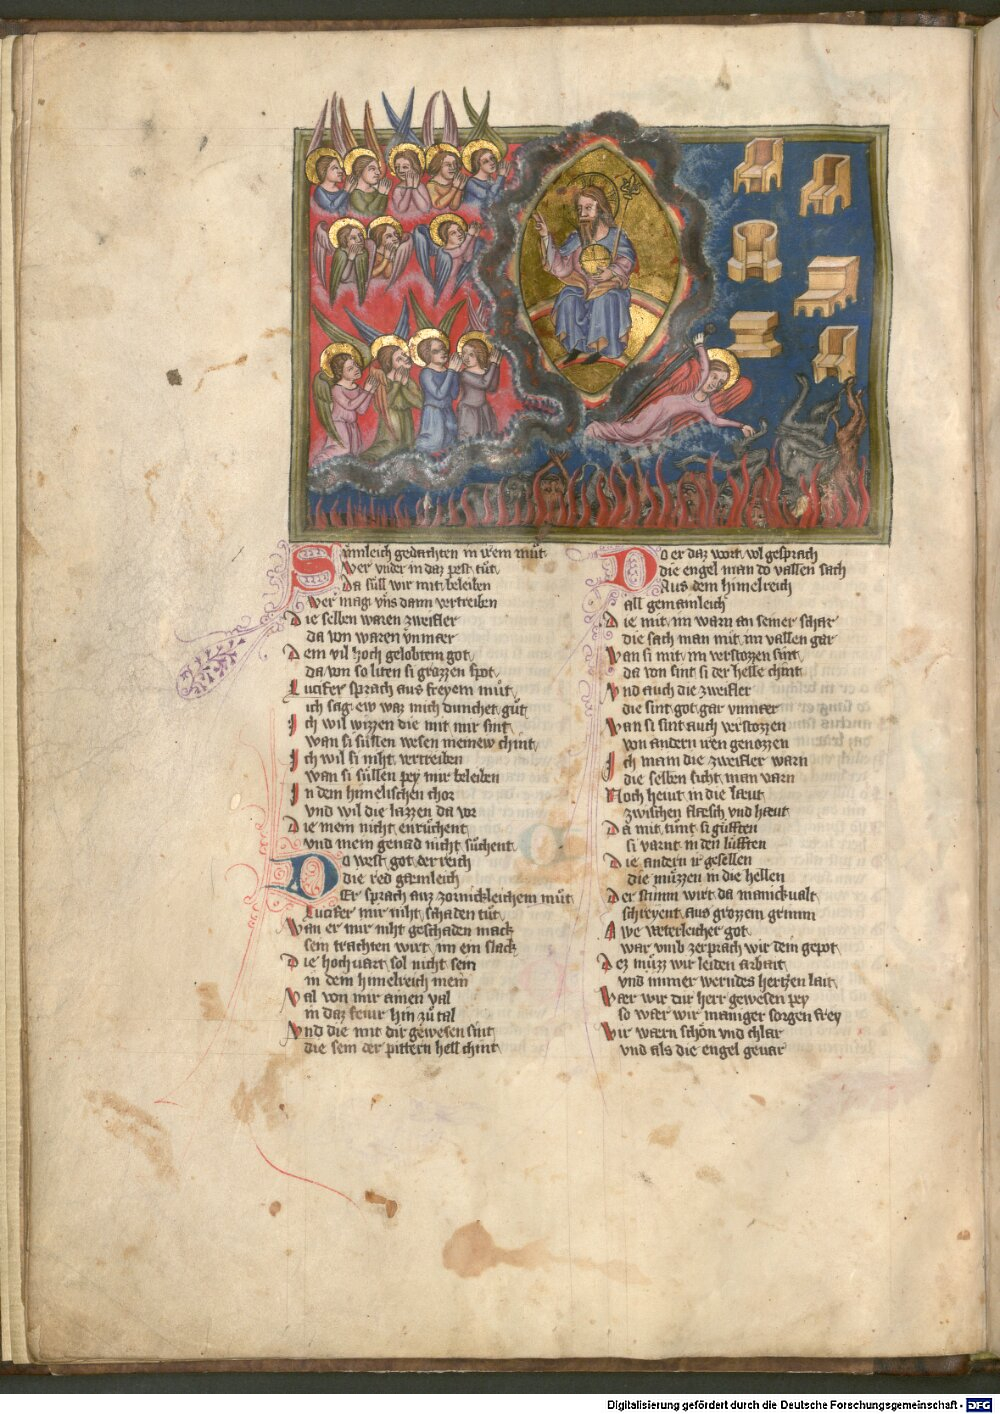 Sumleich gedachten in irem můt
Wer vnder in daz pest tůt
Da süll wir mit beleiben
wer mag vns dann vertreiben
Die selben waren zweifler
da von waren vnmær
Dem vil hoch gelobtem got
da von so liten si grozzen spot
Lucifer sprach aus freyem můt
ich sag ew waz mich dunchet gůt
Ich wil wizzen die mit mir sint
wan si süllen wesen meinew chint
Ich wil si niht vertreiben
wan si süllen pey mir beleiben
In dem himelischen chor
vnd wil die lazzen da vor
Die mein nicht enrůchent
vnd mein genad nicht sůchent
Do west got der reich
die red gæmleich
Er sprach auz zornichleichem můt
Lucifer mir niht schaden tůt
Wan er mir niht geschaden mack
sein trachten wirt im ein slack
Die hochuart sol nicht sein
in dem himelreich mein
Val von mir amen val
in daz feiur hin zů tal
Vnd die mit dir gewesen sint
die sein der pittern hell chint
Do er daz wort wol gesprach
die engel man do vallen sach
Aus dem himelreich
all gemainleich
Die mit im warn an seiner schar
die sach man mit im vallen gar
Wan si mit im verstozzen sint
da von sint si der helle chint
Vnd auch die zweifler
die sint got gar vnmær
Wan si sint auch verstozzen
von andern iren genozzen
Ich main die zweifler warn
die selben sicht man varn
Noch heiut in die læut
zwischen flæsch vnd hæut
Da mit tůnt si gůfften
si varnt in den lüfften
Die andern ir gesellen
die můzzen in die hellen
Der stimm wirt da manickualt
schreyent aus grozzem grimm
Awe veterleicher got
war vmb zerprach wir dein gepot
Dez můzz wir leiden arbait
vnd immer werndes hertzen lait
Wær wir dir herr gewesen pey
so wær wir maniger sorgen frey
Wir wærn schön vnd chlar
vnd als die engel geuar
Digitalisierung gefördert durch die Deutsche Forschungsgemeinschaft - DFG